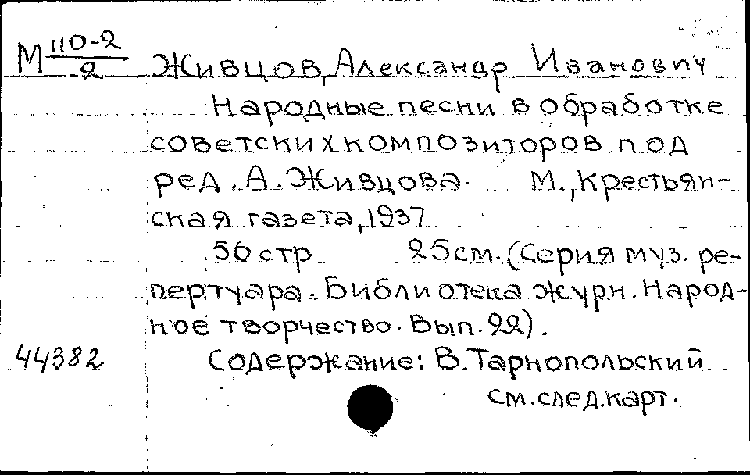 М 110-2/2 Живцов, Александр Иванович
Народные песни в обработке
советских композиторов под
ред. А. Живцова. М., Крестьян-
ская газета, 1937
56 стр 25 см. (Серия муз. ре-
пертуара. Библиотека журн. Народ-
ное творчество. Вып. 22).
44382 Содержание: В. Тарнопольский
см. след. карт.